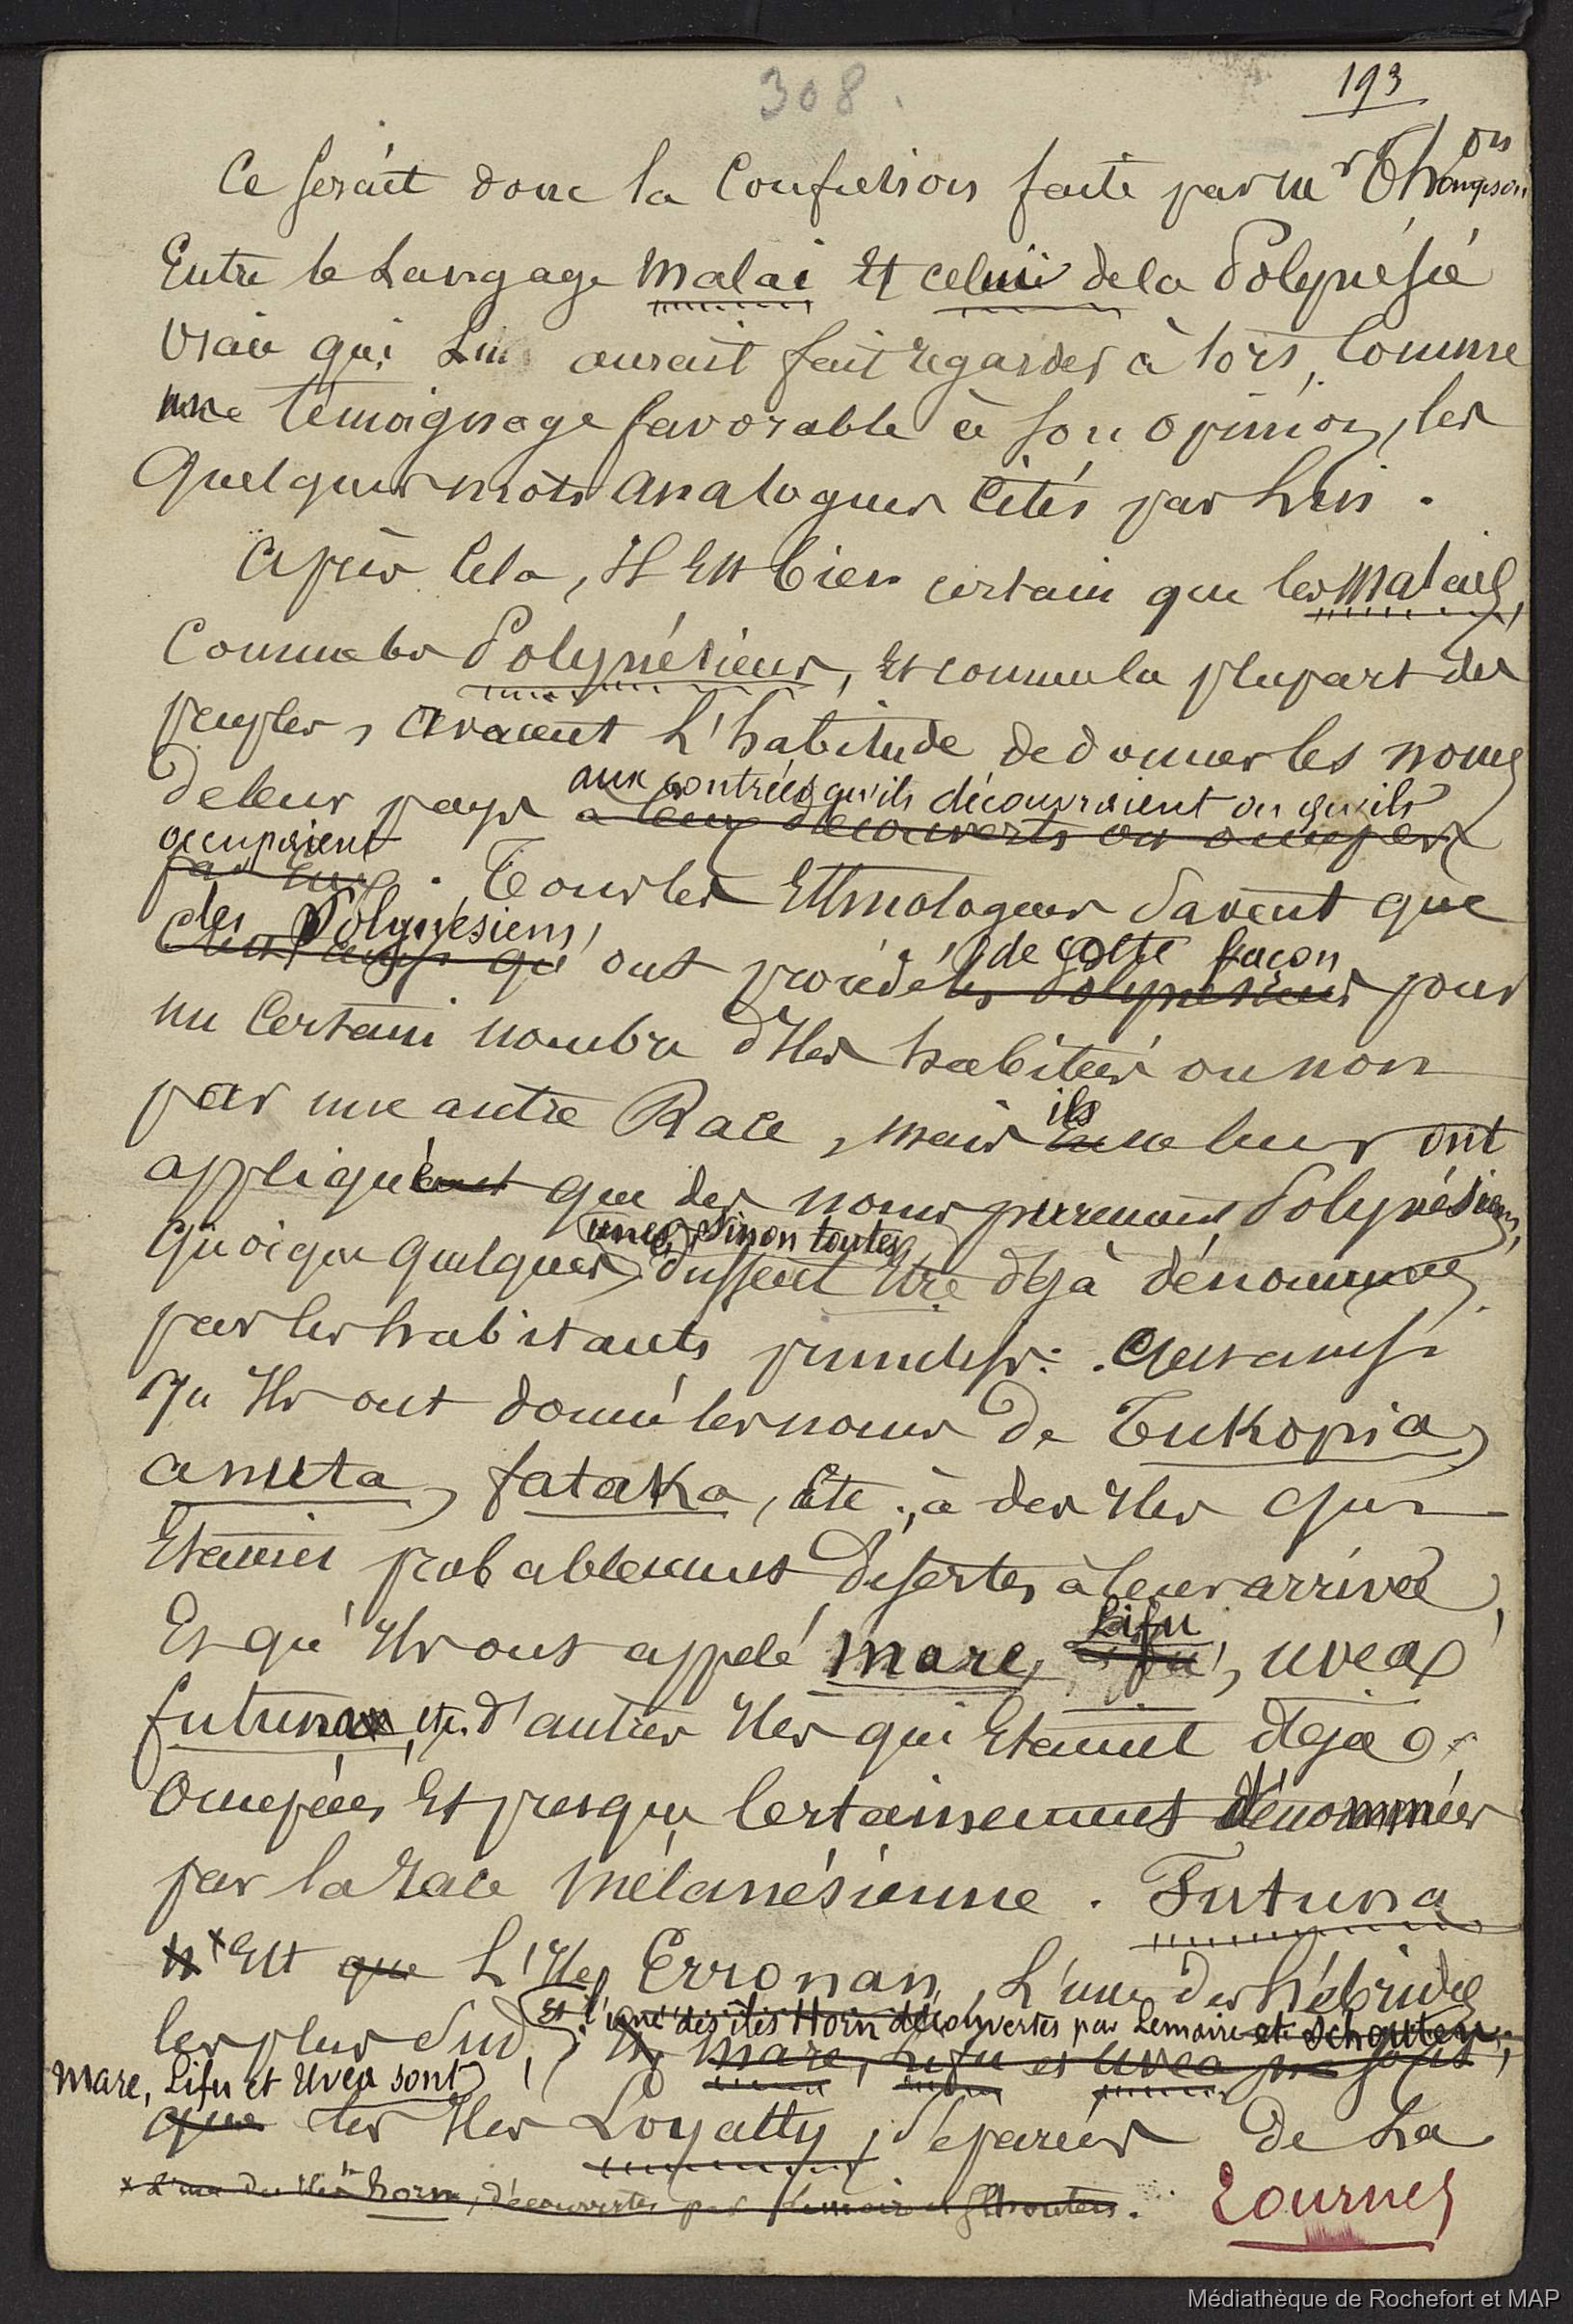 308.
193
Ce serait donc la Confusion faite par mr Thompson
Entre le Langage malai Et celui de la Polynésie
Vraie qui Lui aurait fait regarder à tort, Comme
une témoignage favorable à son opinion, les
Quelques mots analogues Cités par Lui.
Après Cela, Il Est bien certain que les malais,
Comme les Polynésiens, et comme la plupart des
peuples, avaient L'habitude de donner les noms
aux contrées qu'ils découvraient ou qu'ils
de leur pays à leurs découverts ou occupés
occupaient
par eux. Tous les Ethnologues Savent que
les Polynésiens,
C'est ainsi qu' ont procédé les Polynésiens pour
de cette façon
un Certain nombre d'Iles habitées ou non
par une autre Race, mais ils ne leur ont
appliquèrent que des noms purement Polynésiens,
unes, sinon toutes
Quoique quelques dussent Etre déjà dénommées
par les habitants primitifs: C'est ainsi
qu'Ils ont donné les noms de Tukopia,
anuta, fataka, Etc., à des Iles qui
Etaient probablement désertes à leur arrivée,
Et qu'Ils ont appelé mare, Lifu, uvea,
futuna, etc. d'autres Iles qui Etaient déjà
Occupées Et presque Certainement dénommées
par la race mélanésienne. Futuna
n'Est que L'Ile Erronan, L'une des hébrides
Et l'une des îles Horn découvertes par Lemaire et Schouten;
les plus Sud, mare, Lifu et Uvea ne sont
Mare, Lifu et Uvea sont
que les Iles Loyalty, séparées de La
* L'une des Iles horn, découvertes par Lemaire et Schouten.
Tournez
Médiathèque de Rochefort et MAP